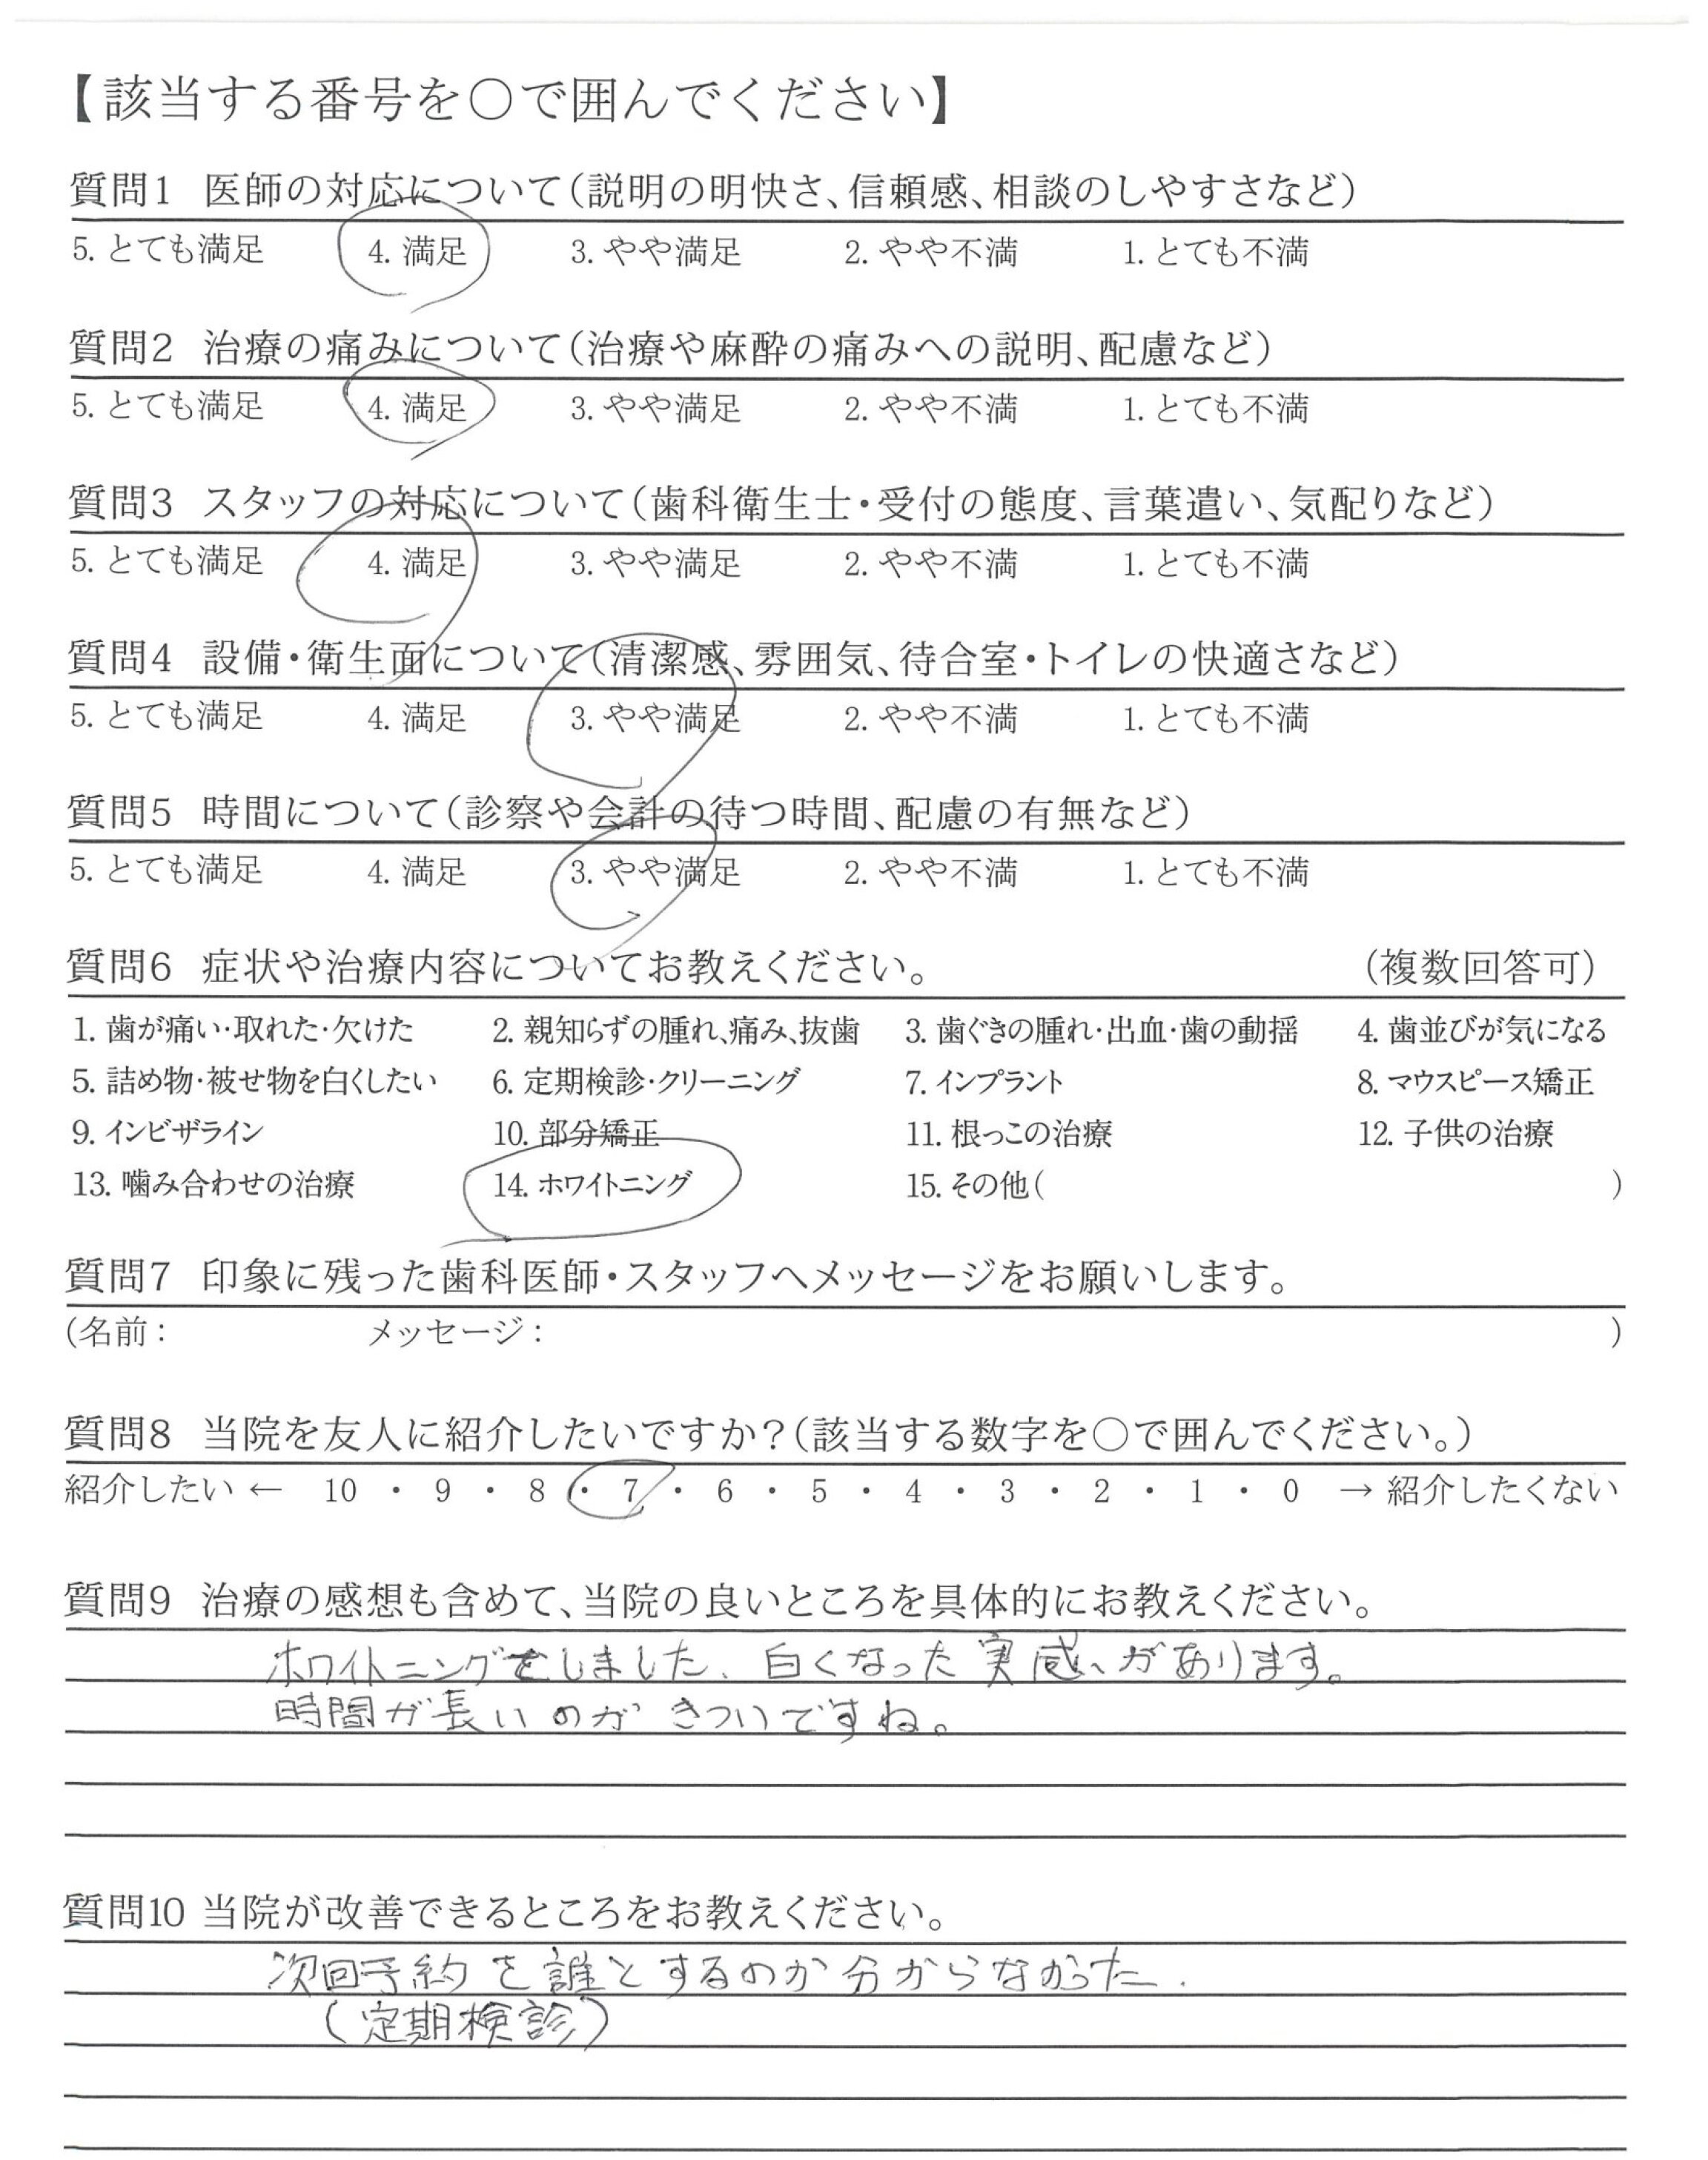 【該当する番号を〇で囲んでください】
質問1 医師の対応について(説明の明快さ、信頼感、相談のしやすさなど)
5. とても満足 4. 満足 3. やや満足 2. やや不満 1. とても不満
質問2 治療の痛みについて(治療や麻酔の痛みへの説明、配慮など)
5. とても満足 4. 満足 3. やや満足 2. やや不満 1. とても不満
質問3 スタッフの対応について(歯科衛生士・受付の態度、言葉遣い、気配りなど)
5. とても満足 4. 満足 3. やや満足 2. やや不満 1. とても不満
質問4 設備・衛生面について(清潔感、雰囲気、待合室・トイレの快適さなど)
5. とても満足 4. 満足 3. やや満足 2. やや不満 1. とても不満
質問5 時間について(診察や会計の待つ時間、配慮の有無など)
5. とても満足 4. 満足 3. やや満足 2. やや不満 1. とても不満
質問6 症状や治療内容についてお教えください。 (複数回答可)
1. 歯が痛い・取れた・欠けた 2. 親知らずの腫れ、痛み、抜歯 3. 歯ぐきの腫れ・出血・歯の動揺 4. 歯並びが気になる
5. 詰め物・被せ物を白くしたい 6. 定期検診・クリーニング 7. インプラント 8. マウスピース矯正
9. インビザライン 10. 部分矯正 11. 根っこの治療 12. 子供の治療
13. 噛み合わせの治療 14. ホワイトニング 15. その他( )
質問7 印象に残った歯科医師・スタッフへメッセージをお願いします。
(名前: メッセージ: )
質問8 当院を友人に紹介したいですか?(該当する数字を〇で囲んでください。)
紹介したい ← 10 ・ 9 ・ 8 ・ 7 ・ 6 ・ 5 ・ 4 ・ 3 ・ 2 ・ 1 ・ 0 → 紹介したくない
質問9 治療の感想も含めて、当院の良いところを具体的にお教えください。
ホワイトニングをしました、白くなった実感があります。
時間が長いのがきついですね。
質問10 当院が改善できるところをお教えください。
次回予約を誰とするのか分からなかった.
(定期検診)